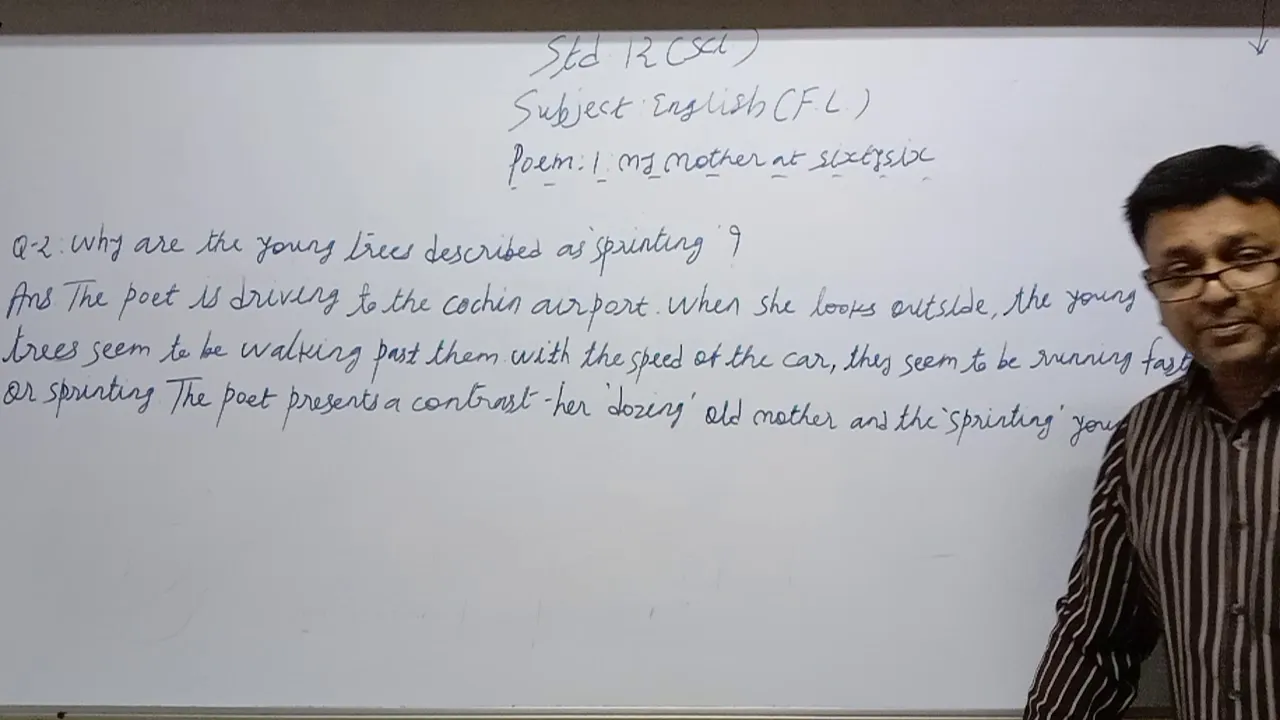 Std 12 (Sci)
Subject English (F.L.)
Poem: 1. My Mother at sixtysix
Q-2: Why are the young trees described as 'sprinting'?
Ans The poet is driving to the cochin airport. When she looks outside, the young
trees seem to be walking past them. with the speed of the car, they seem to be running fast
or sprinting The poet presents a contrast - her 'dozing' old mother and the 'sprinting'